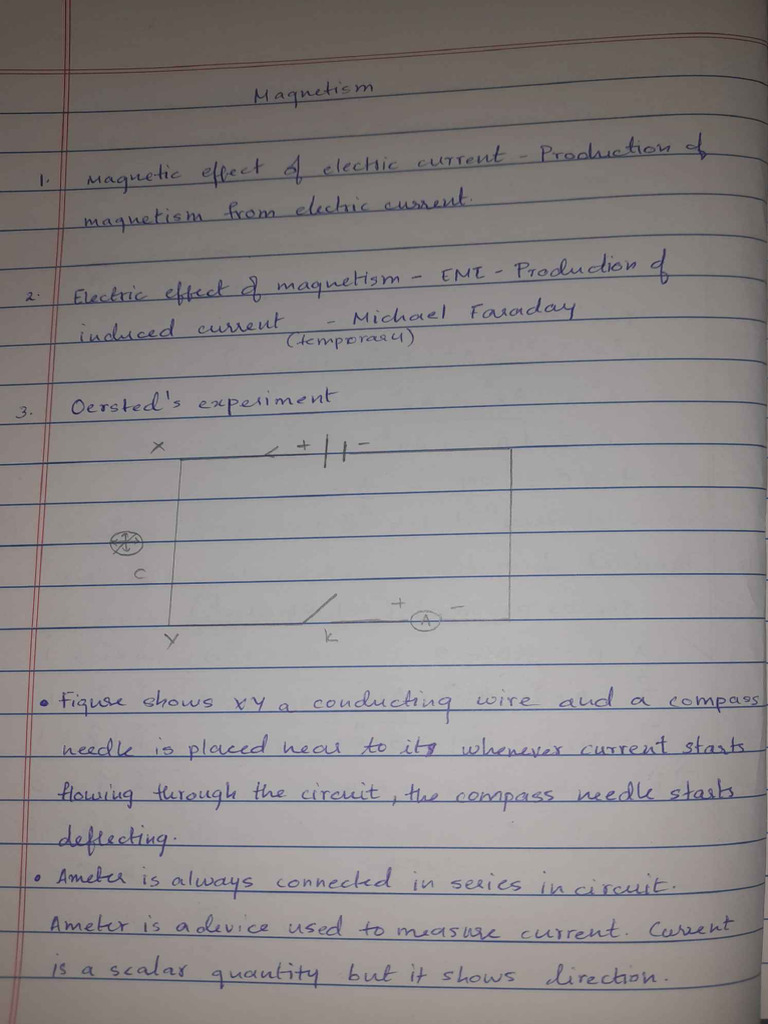 Magnetism
1. Magnetic effect of electric current - Production of
magnetism from electric current.
2. Electric effect of magnetism - EMI - Production of
induced current - Michael Faraday
(temporary)
3. Oersted's experiment
X + -
C
+ -
A
Y K
• Figure shows XY a conducting wire and a compass
needle is placed near to its whenever current starts
flowing through the circuit, the compass needle starts
deflecting.
• Ameter is always connected in series in circuit.
Ameter is a device used to measure current. Current
is a scalar quantity but it shows direction.